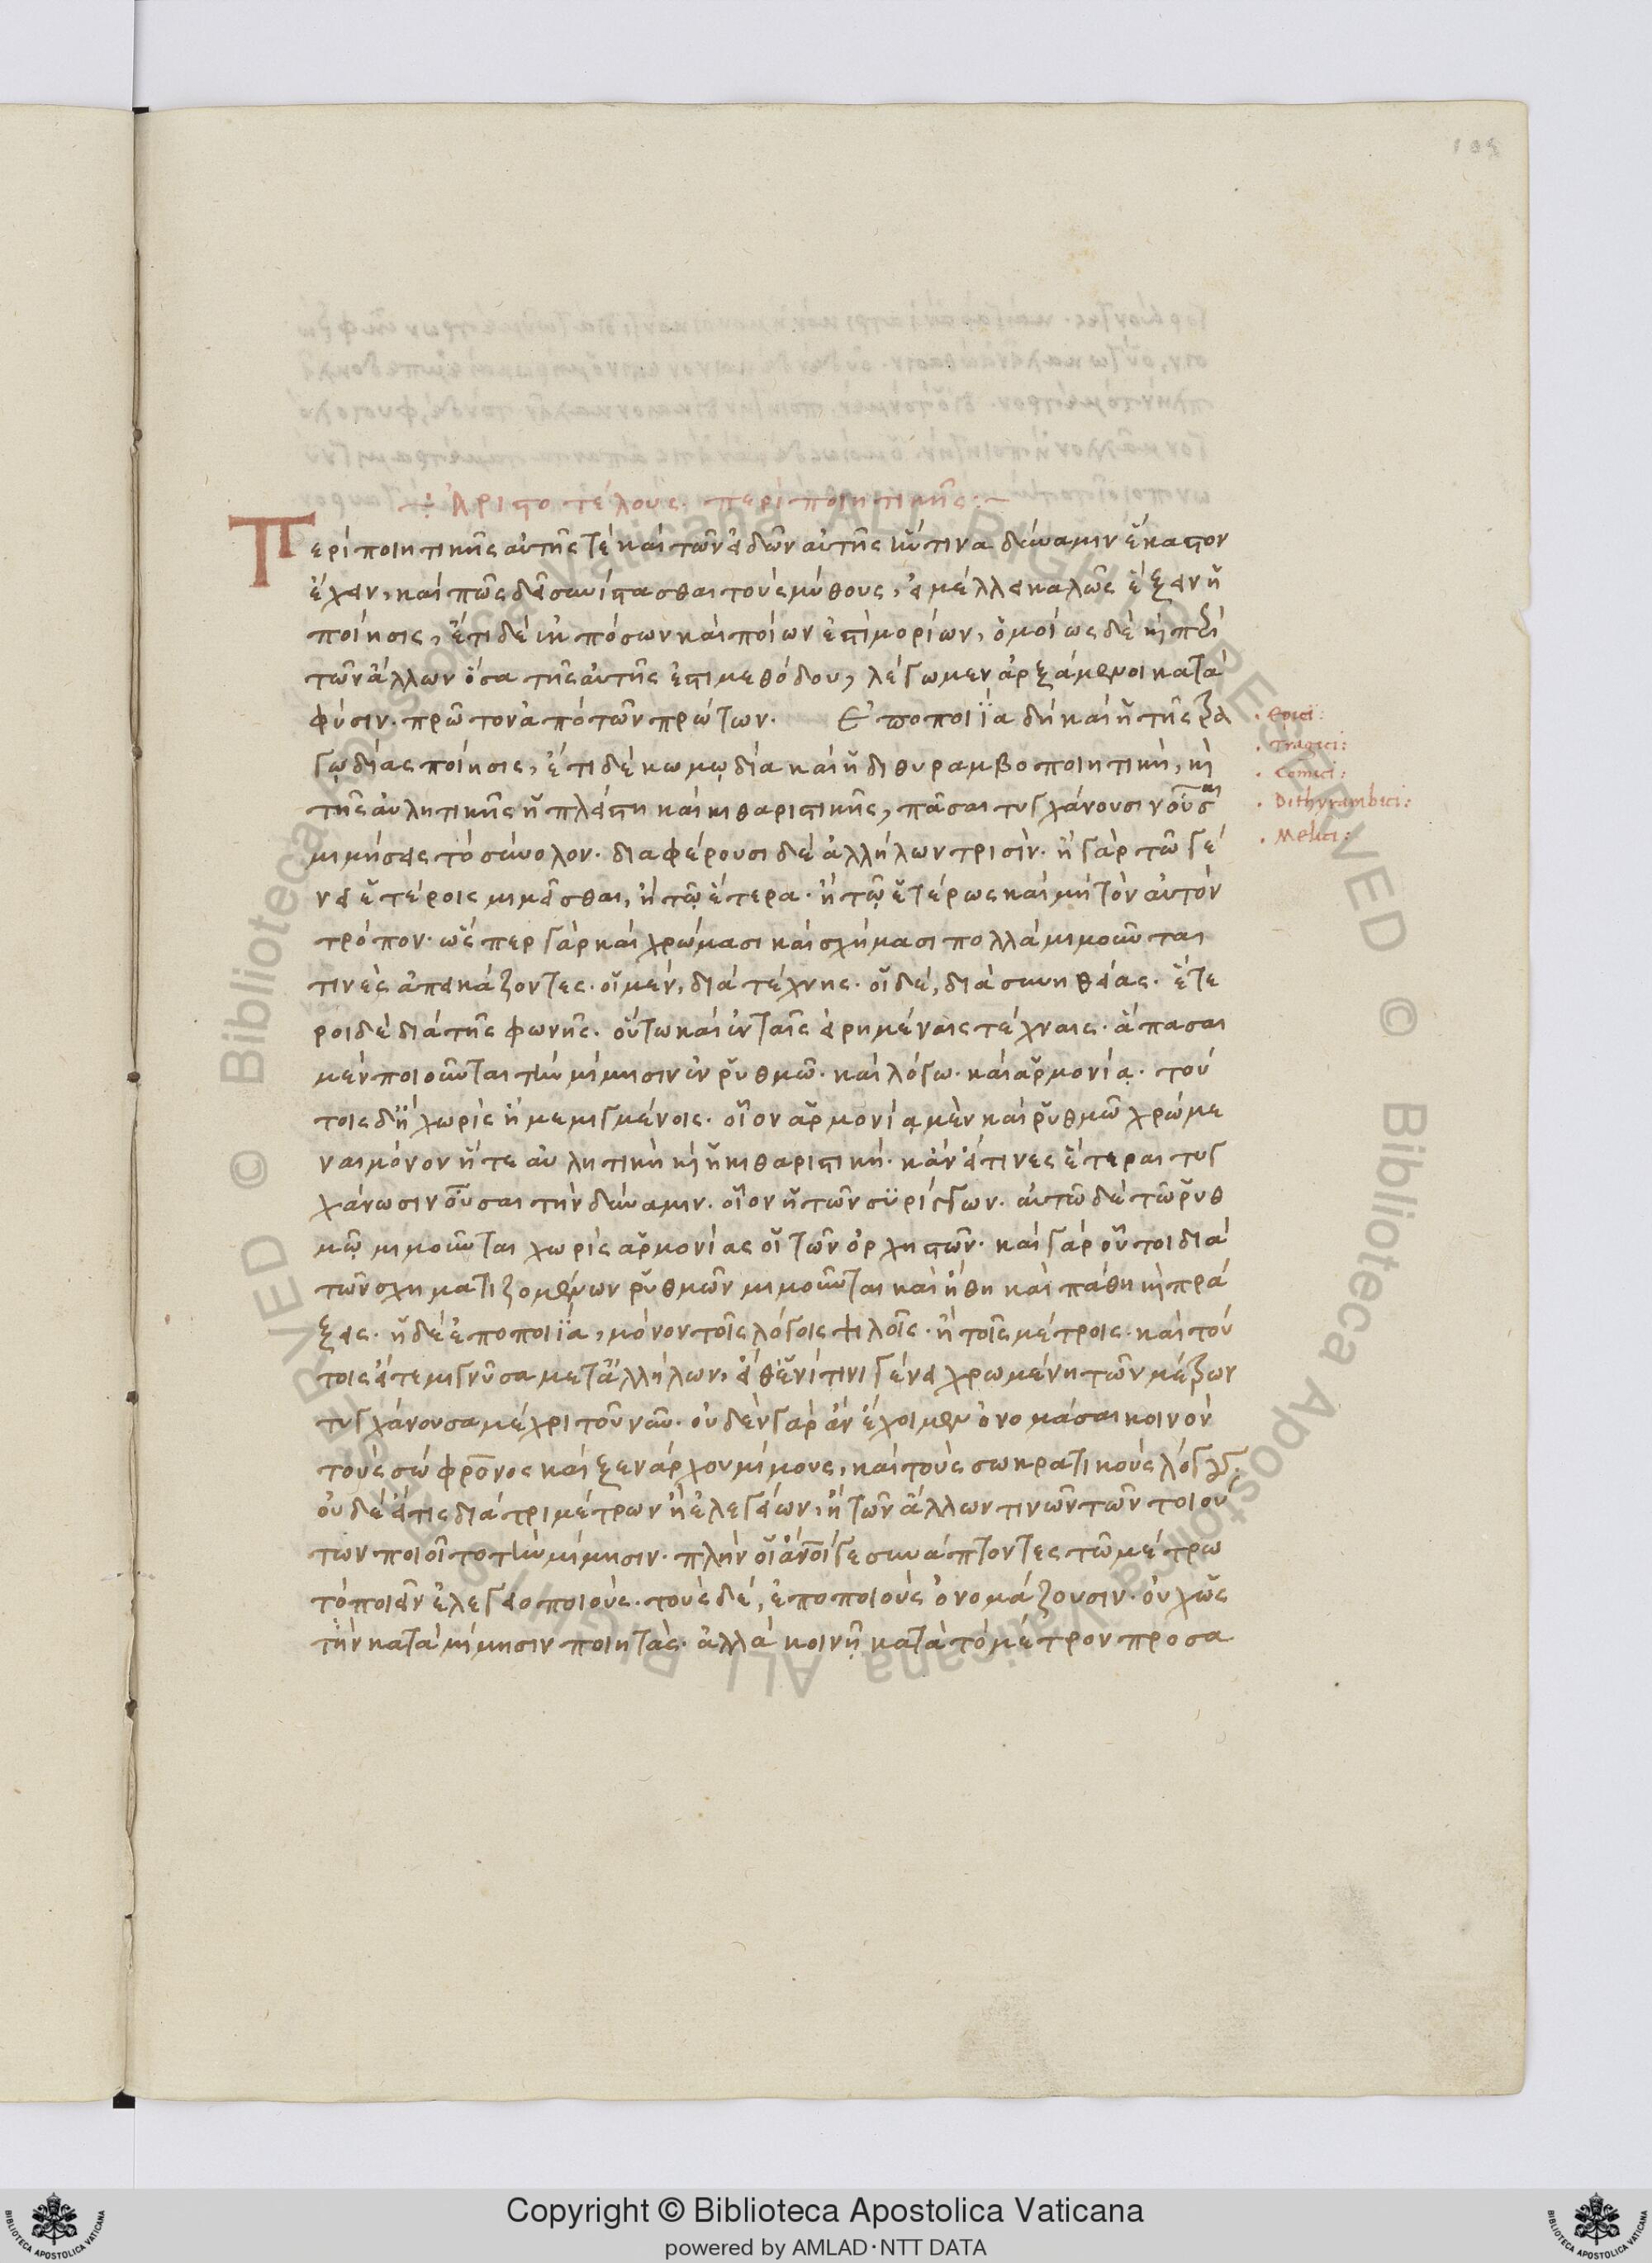 105
Ἀριστοτέλους περὶ ποιητικῆς:~
Περὶ ποιητικῆς αὐτῆς τὲ καὶ τῶν εἰδῶν αὐτῆς ἥν τινα δύναμιν ἕκαστον
ἔχει, καὶ πῶς δεῖ συνίστασθαι τοὺς μύθους, εἰ μέλλει καλῶς ἕξειν ἡ
ποίησις, ἔτι δὲ ἐκ πόσων καὶ ποίων ἐστὶ μορίων, ὁμοίως δὲ καὶ περὶ
τῶν ἄλλων ὅσα τῆς αὐτῆς ἐστι μεθόδου, λέγωμεν ἀρξάμενοι κατὰ
φύσιν. πρῶτον ἀπὸ τῶν πρώτων. Ἐποποιΐα δὴ καὶ ἡ τῆς τρα
γῳδίας ποίησις, ἔτι δὲ κωμῳδία καὶ ἡ διθυραμβοποιητικὴ, καὶ
τῆς αὐλητικῆς ἡ πλείστη καὶ κιθαριστικῆς, πᾶσαι τυγχάνουσιν οὖσαι
μιμήσεις τὸ σύνολον. διαφέρουσι δὲ ἀλλήλων τρισὶν. ἢ γὰρ τῶ γέ
νει ἑτέροις μιμεῖσθαι, ἢ τῷ ἕτερα. ἢ τῷ ἑτέρως καὶ μὴ τὸν αὐτὸν
τρόπον. ὥσπερ γὰρ καὶ χρώμασι καὶ σχήμασι πολλὰ μιμοῦνται
τινὲς ἀπεικάζοντες. οἱ μὲν, διὰ τέχνης. οἱ δὲ, διὰ συνηθείας. ἕτε
ροι δὲ διὰ τῆς φωνῆς. οὕτω καὶ ἐν ταῖς εἰρημέναις τέχναις. ἅπασαι
μὲν ποιοῦνται τὴν μίμησιν ἐν ῥυθμῶ. καὶ λόγω. καὶ ἁρμονίᾳ. τού
τοις δ' ἢ χωρὶς ἢ μεμιγμένοις. οἷον ἁρμονίᾳ μὲν καὶ ῥυθμῶ χρώμε
ναι μόνον ἥ τε αὐλητικὴ καὶ ἡ κιθαριστική. κἂν εἴ τινες ἕτεραι τυγ
χάνωσιν οὖσαι τὴν δύναμιν. οἷον ἡ τῶν συρίγγων. αὐτῶ δὲ τῶ ῥυθ
μῷ μιμοῦνται χωρὶς ἁρμονίας οἱ τῶν ὀρχηστῶν. καὶ γὰρ οὗτοι διὰ
τῶν σχηματιζομένων ῥυθμῶν μιμοῦνται καὶ ἤθη καὶ πάθη καὶ πρά
ξεις. ἡ δὲ ἐποποιΐα, μόνον τοῖς λόγοις ψιλοῖς. ἢ τοῖς μέτροις. καὶ τού
τοις εἴτε μιγνῦσα μετ' ἀλλήλων, εἴθ' ἑνί τινι γένει χρωμένη τῶν μέτρων
τυγχάνουσα μέχρι τοῦ νῦν. οὐδὲν γὰρ ἂν ἔχοιμεν ὀνομάσαι κοινὸν
τοὺς σώφρονος καὶ ξενάρχου μίμους, καὶ τοὺς σωκρατικοὺς λόγους.
οὐδὲ εἴ τις διὰ τριμέτρων ἢ ἐλεγείων, ἢ τῶν ἄλλων τινῶν τῶν τοιού
των ποιοῖτο τὴν μίμησιν. πλὴν οἱ ἄνοί γε συνάπτοντες τῶ μέτρω
τὸ ποιεῖν ἐλεγειοποιοὺς. τοὺς δὲ, ἐποποιοὺς ὀνομάζουσιν. οὐχ ὡς
τὴν κατὰ μίμησιν ποιητὰς. ἀλλὰ κοινῇ κατὰ τὸ μέτρον προσα
. Epici:
. Tragici:
. Comici:
. Dithyrambici:
. Melici:
Copyright © Biblioteca Apostolica Vaticana
powered by AMLAD·NTT DATA